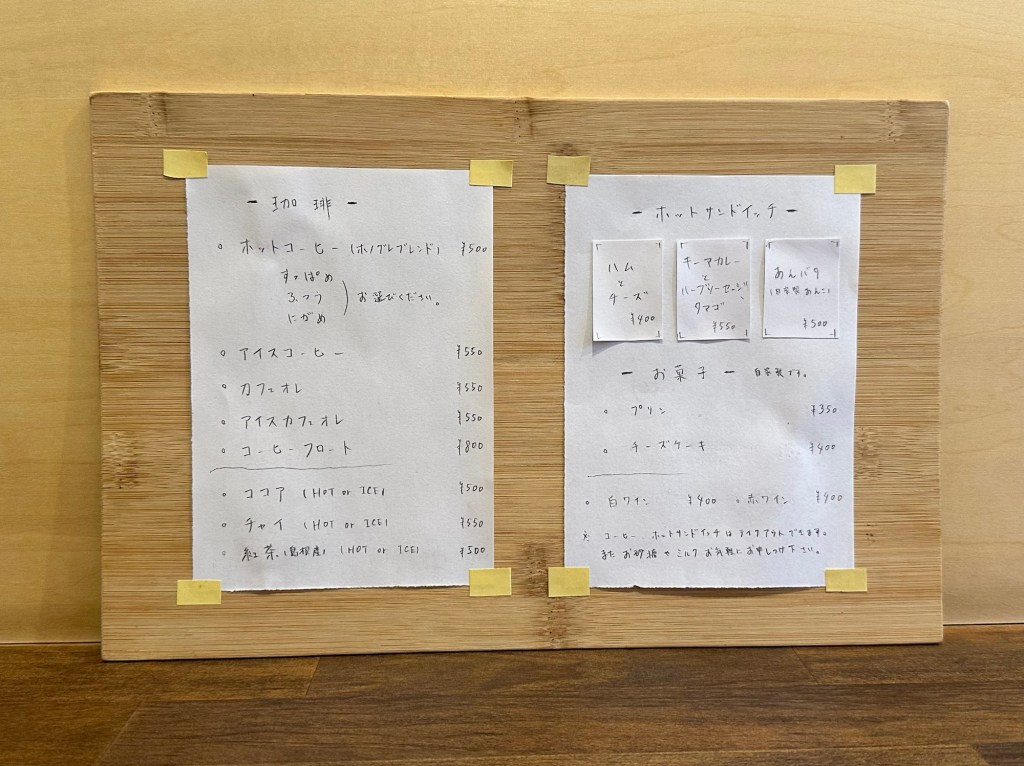 ー 珈琲 ー
○ ホットコーヒー (ホノブレブレンド) ¥500
すっぱめ
ふつう
にがめ
お選びください。
○ アイスコーヒー ¥550
○ カフェオレ ¥550
○ アイスカフェオレ ¥550
○ コーヒーフロート ¥800
○ ココア (HOT or ICE) ¥500
○ チャイ (HOT or ICE) ¥550
○ 紅茶(島根産) (HOT or ICE) ¥500
ー ホットサンドイッチ ー
ハム
と
チーズ
¥400
キーマカレー
と
ハーブソーセージ、
タマゴ
¥550
あんバタ
(自家製あんこ)
¥500
ー お菓子 ー 自家製です。
○ プリン ¥350
○ チーズケーキ ¥400
○ 白ワイン ¥400 ○ 赤ワイン ¥400
※ コーヒー、ホットサンドイッチはテイクアウトできます。
また お砂糖やミルク お気軽にお申しつけ下さい。